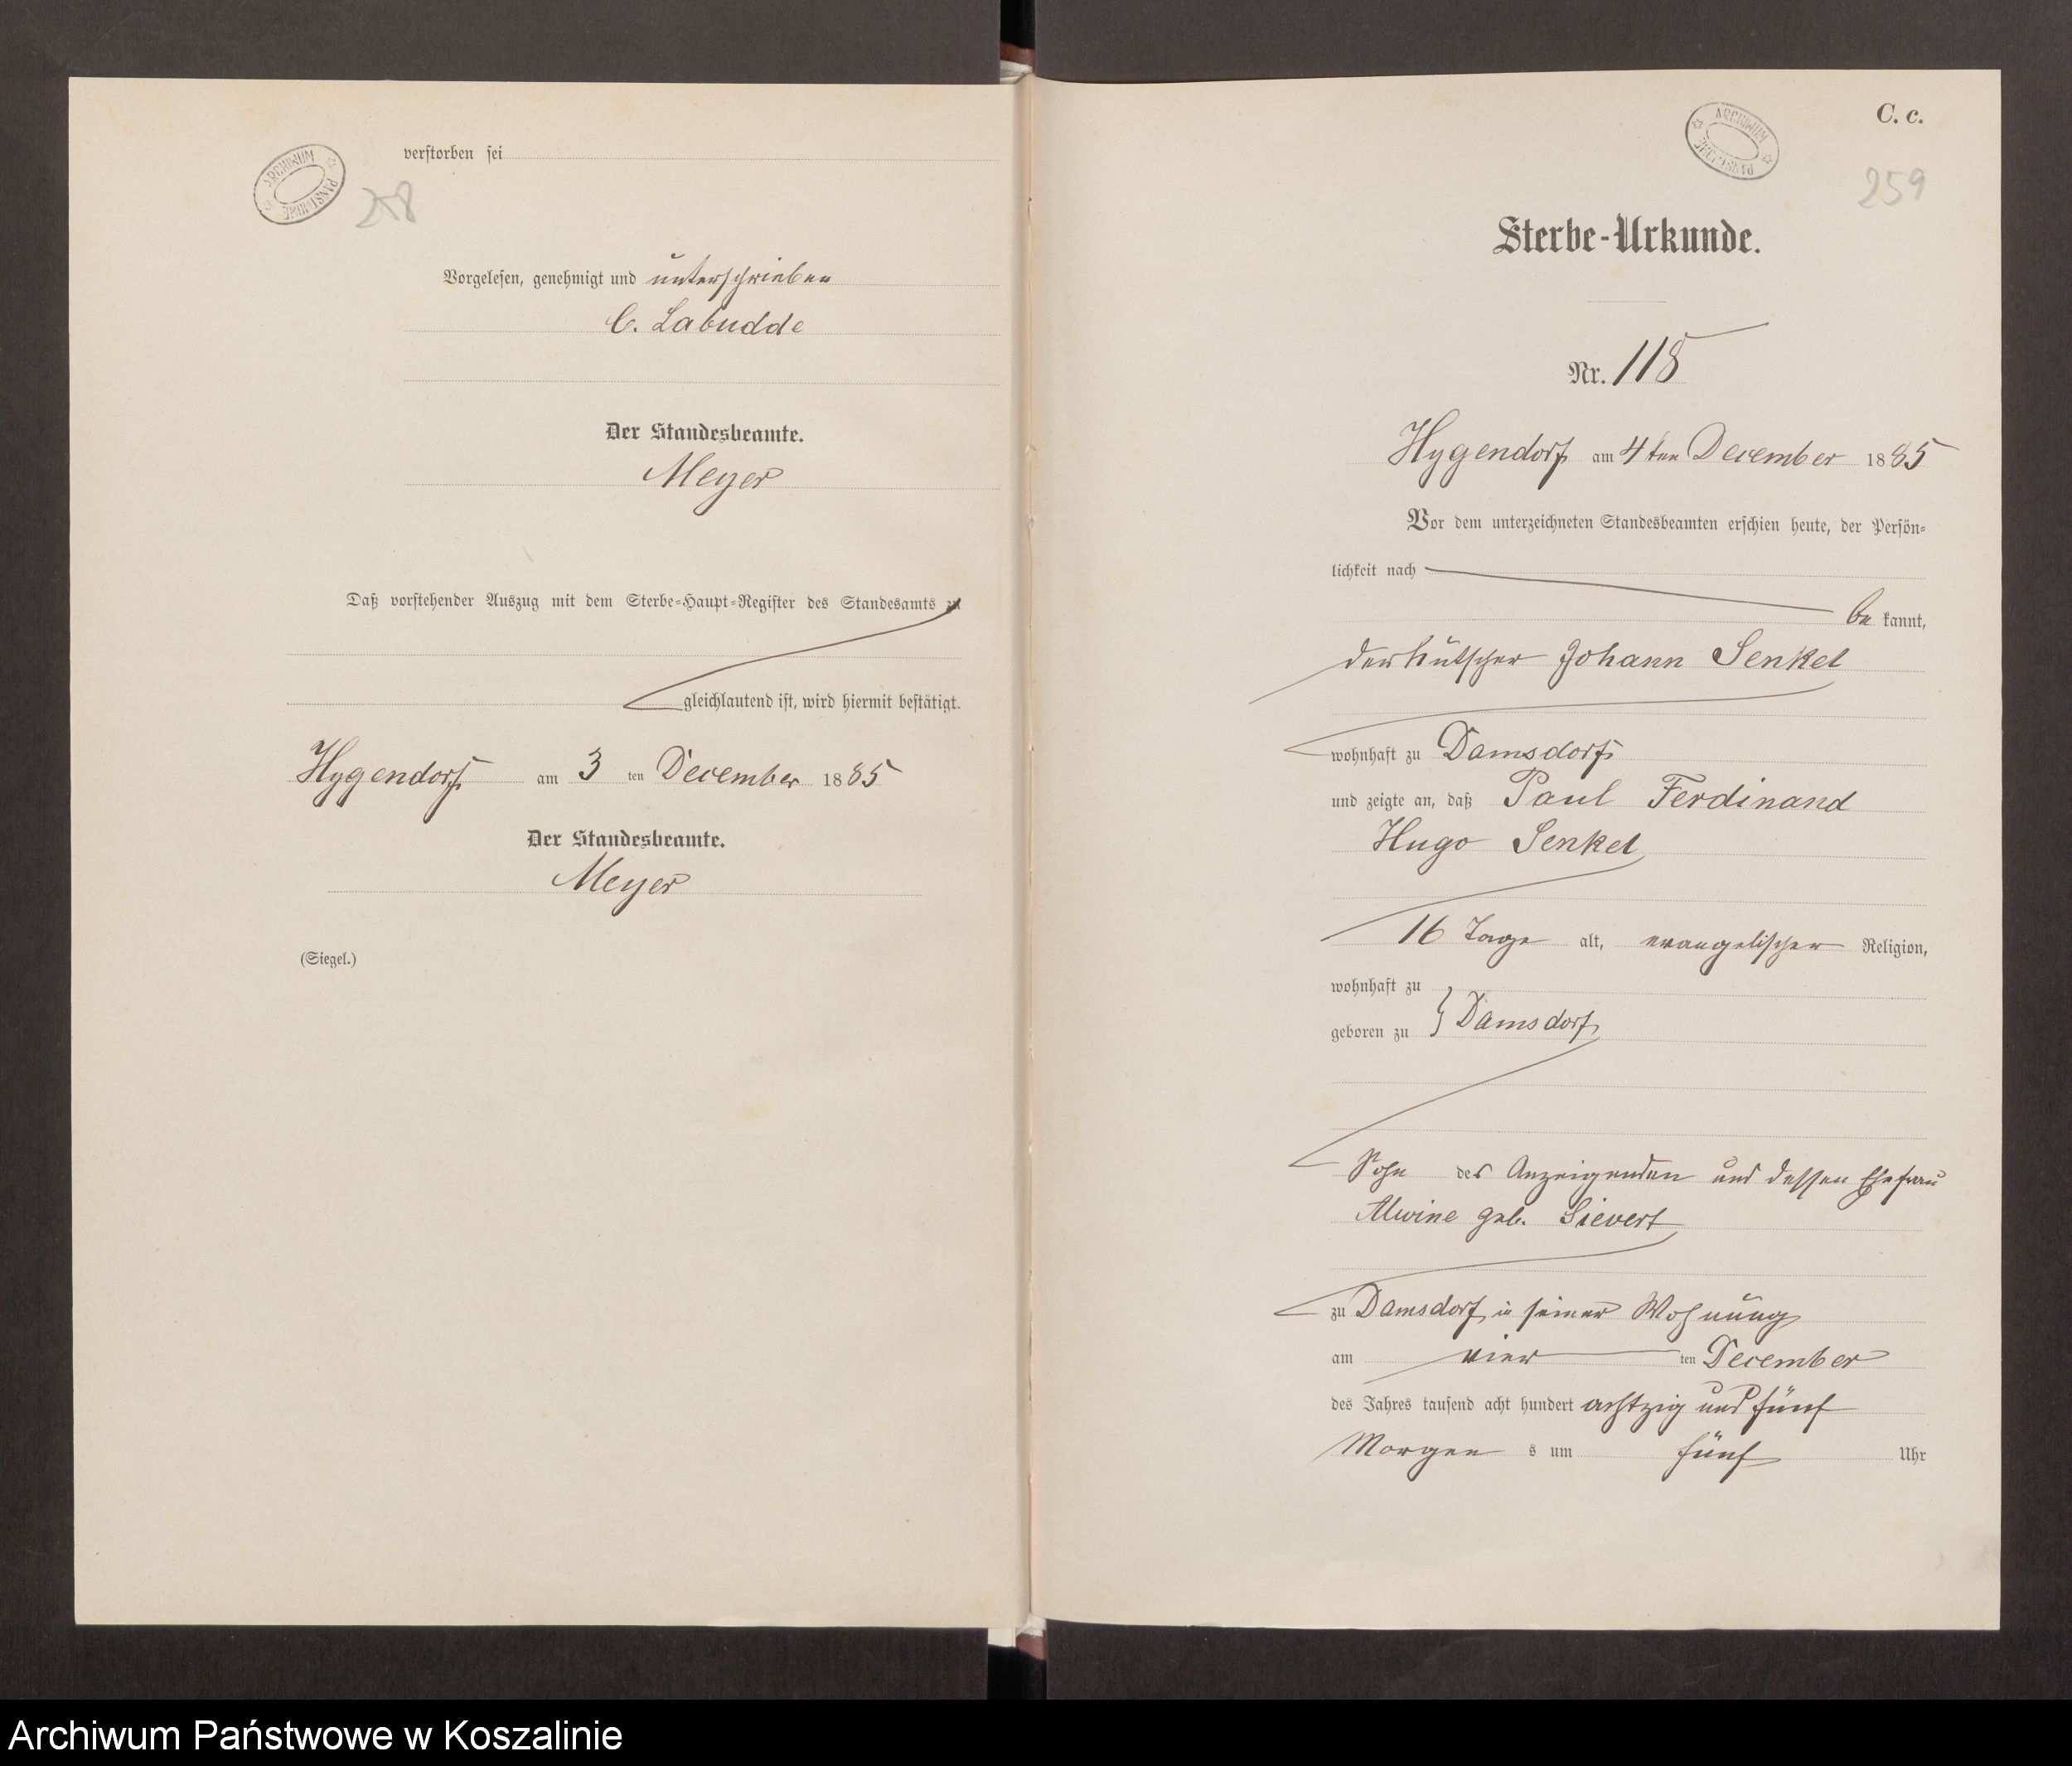 ARCHIWUM PAŃSTWOWE
258
verstorben sei
Vorgelesen, genehmigt und unterschrieben
C. Labudde
Der Standesbeamte.
Meyer
Daß vorstehender Auszug mit dem Sterbe-Haupt-Register des Standesamts zu
gleichlautend ist, wird hiermit bestätigt.
Hygendorf am 3 ten December 1885
Der Standesbeamte.
Meyer
(Siegel.)
C. c.
ARCHIWUM PAŃSTWOWE
259
Sterbe-Urkunde.
Nr. 118
Hygendorf am 4ten December 1885
Vor dem unterzeichneten Standesbeamten erschien heute, der Persön-
lichkeit nach
be kannt,
der Kutscher Johann Senkel
wohnhaft zu Damsdorf
und zeigte an, daß Paul Ferdinand
Hugo Senkel
16 Tage alt, evangelischer Religion,
wohnhaft zu
geboren zu } Damsdorf
Sohn des Anzeigenden und dessen Ehefrau
Alwine geb. Sievert
zu Damsdorf in seiner Wohnung
am vier ten December
des Jahres tausend acht hundert achtzig und fünf
Morgen s um fünf Uhr
Archiwum Państwowe w Koszalinie